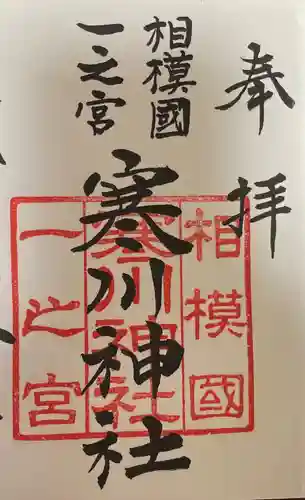 奉拝
相模國
一之宮
寒川神社
相模國
寒川神社
一之宮